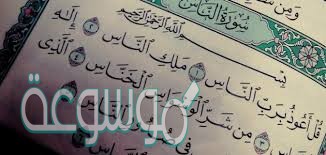 سُورَةُ النَّاسِ
بِسْمِ اللَّهِ الرَّحْمَٰنِ الرَّحِيمِ
قُلْ أَعُوذُ بِرَبِّ النَّاسِ ١ مَلِكِ النَّاسِ ٢ إِلَٰهِ
٣ مِن شَرِّ الْوَسْوَاسِ الْخَنَّاسِ ٤ الَّذِي
فِي صُدُورِ
موسوعة